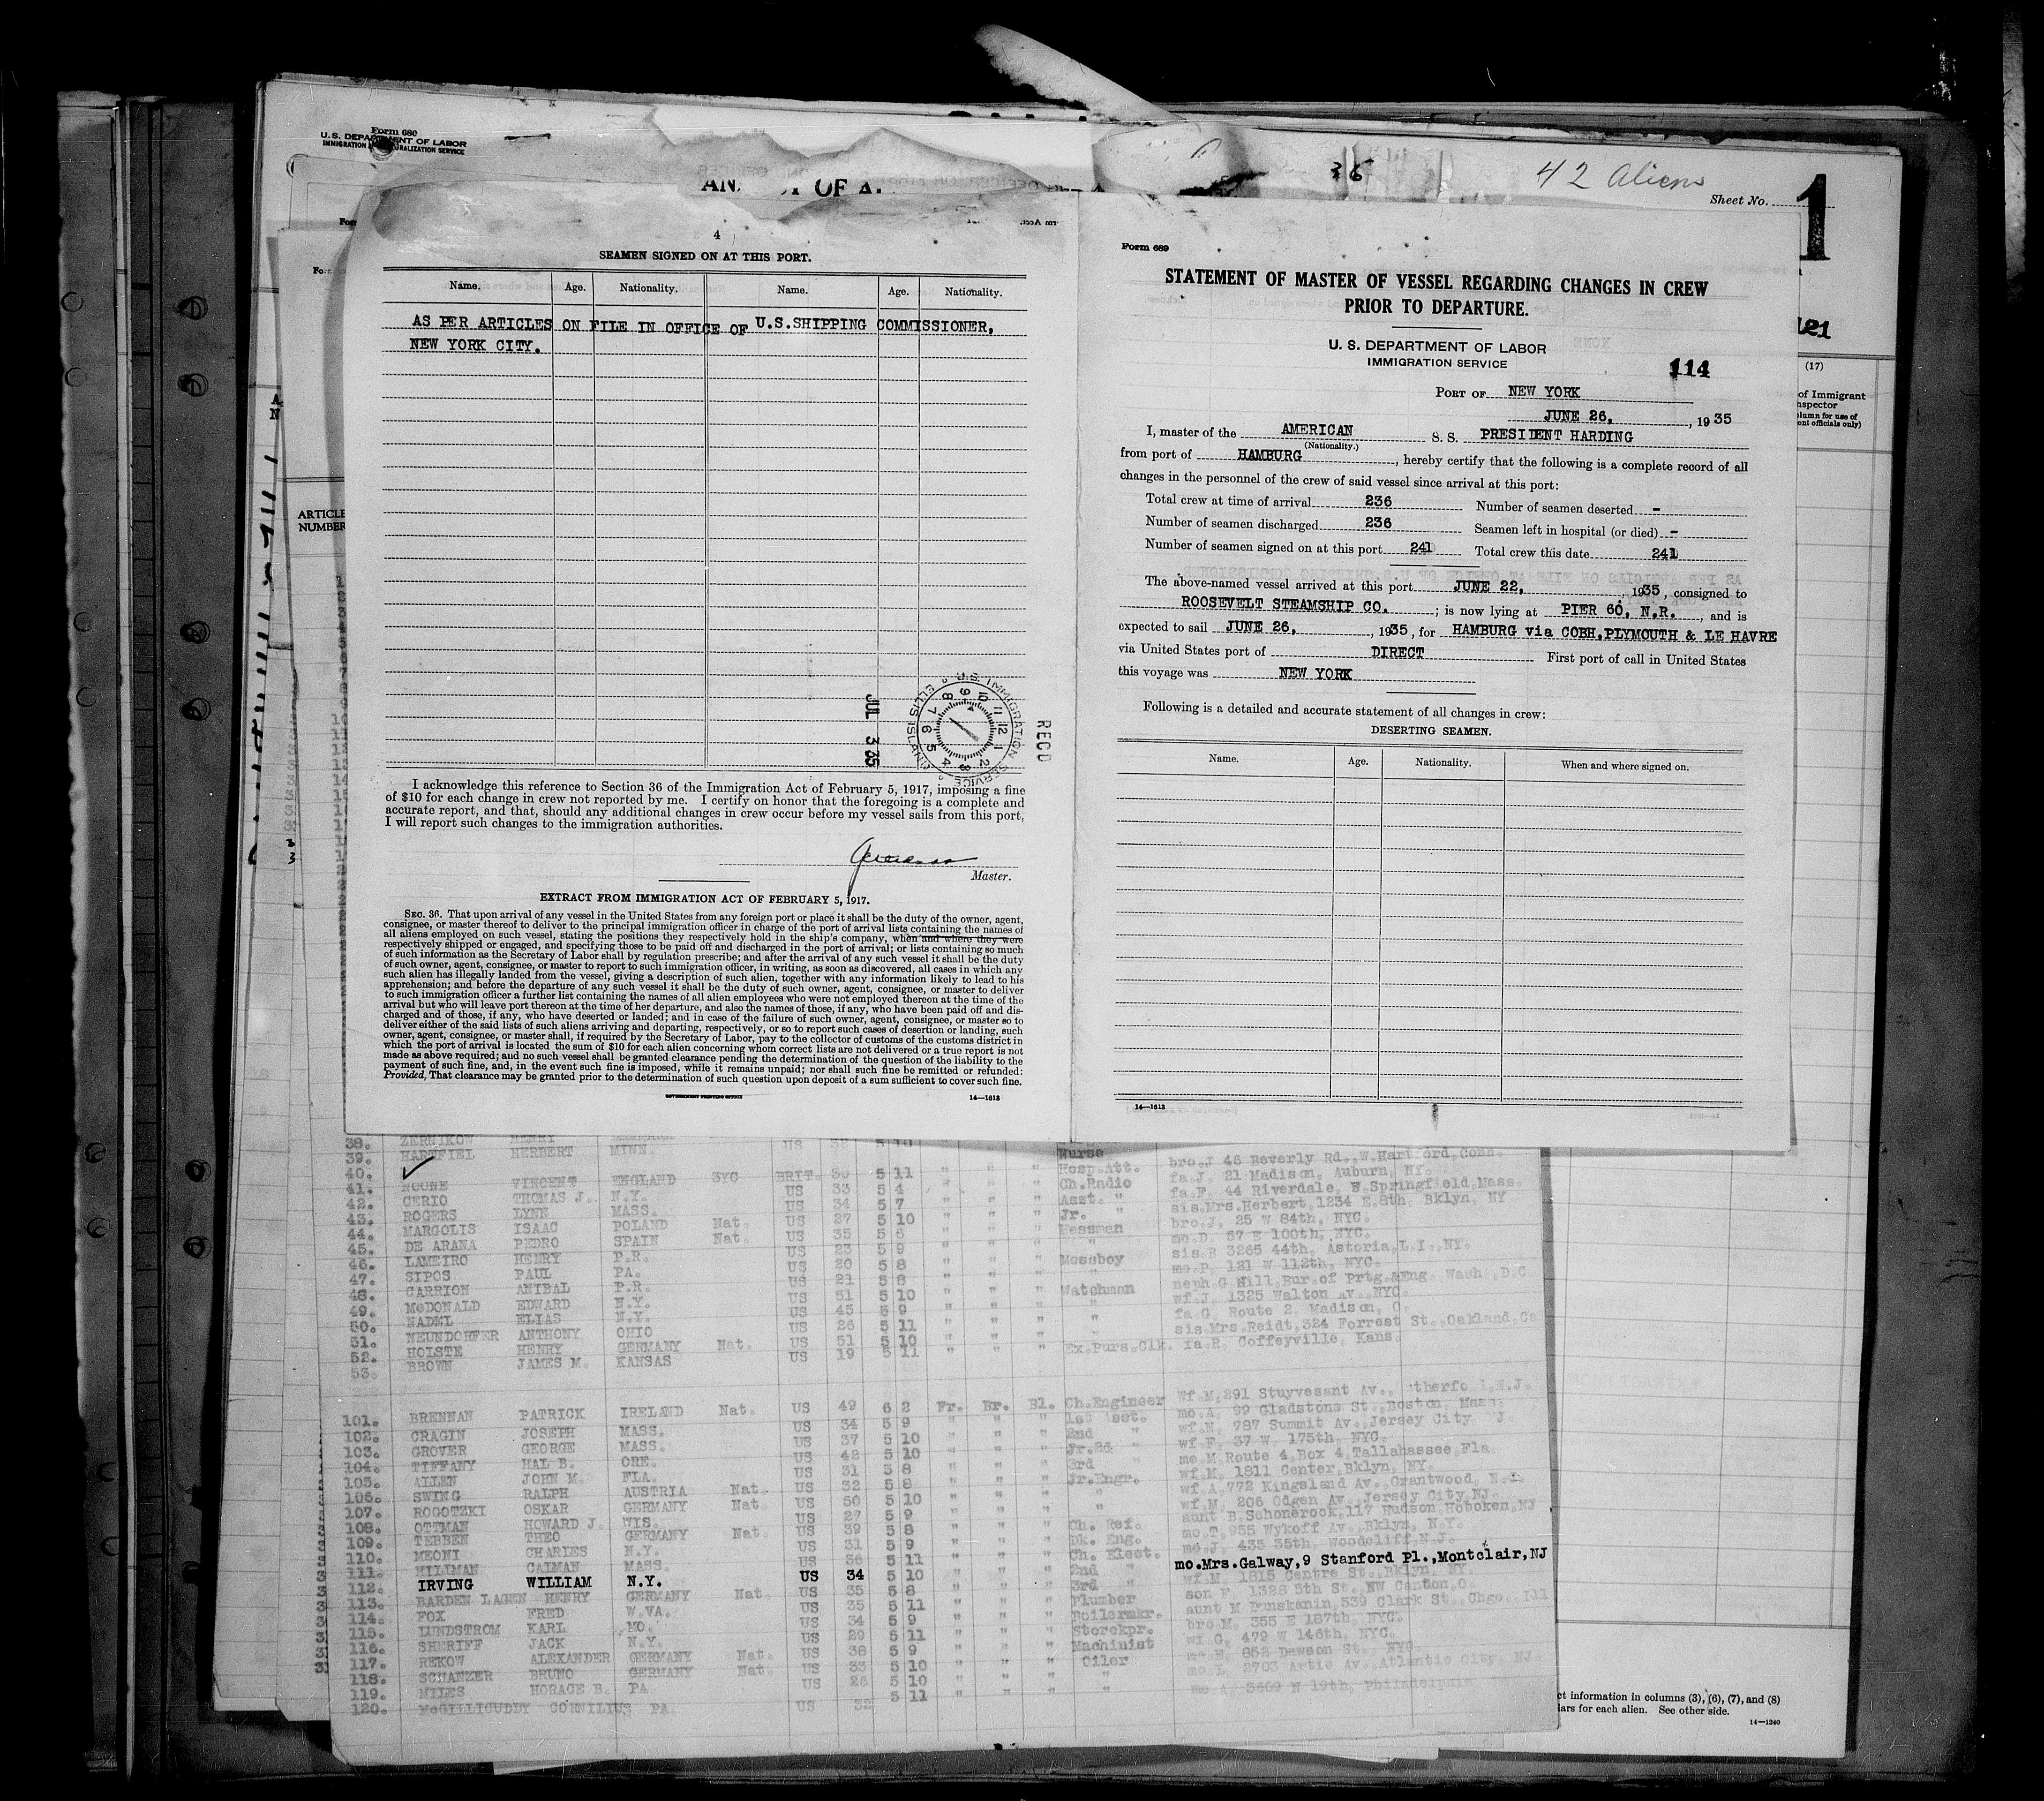 Form 680
U. S. DEPARTMENT OF LABOR
IMMIGRATION NATURALIZATION SERVICE
OF
36
42 Aliens
Sheet No.
1
4
SEAMEN SIGNED ON AT THIS PORT.
Name. Age. Nationality. Name. Age. Nationality.
AS PER ARTICLES ON FILE IN OFFICE OF U.S.SHIPPING COMMISSIONER,
NEW YORK CITY.
RECD
U.S. IMMIGRATION SERVICE ELLIS ISLAND
JUL 3 35
I acknowledge this reference to Section 36 of the Immigration Act of February 5, 1917, imposing a fine
of $10 for each change in crew not reported by me. I certify on honor that the foregoing is a complete and
accurate report, and that, should any additional changes in crew occur before my vessel sails from this port,
I will report such changes to the immigration authorities.
Master.
EXTRACT FROM IMMIGRATION ACT OF FEBRUARY 5, 1917.
SEC. 36. That upon arrival of any vessel in the United States from any foreign port or place it shall be the duty of the owner, agent,
consignee, or master thereof to deliver to the principal immigration officer in charge of the port of arrival lists containing the names of
all aliens employed on such vessel, stating the positions they respectively hold in the ship's company, when and where they were
respectively shipped or engaged, and specifying those to be paid off and discharged in the port of arrival; or lists containing so much
of such information as the Secretary of Labor shall by regulation prescribe; and after the arrival of any such vessel it shall be the duty
of such owner, agent, consignee, or master to report to such immigration officer, in writing, as soon as discovered, all cases in which any
such alien has illegally landed from the vessel, giving a description of such alien, together with any information likely to lead to his
apprehension; and before the departure of any such vessel it shall be the duty of such owner, agent, consignee, or master to deliver
to such immigration officer a further list containing the names of all alien employees who were not employed thereon at the time of the
arrival but who will leave port thereon at the time of her departure, and also the names of those, if any, who have been paid off and dis-
charged and of those, if any, who have deserted or landed; and in case of the failure of such owner, agent, consignee, or master so to
deliver either of the said lists of such aliens arriving and departing, respectively, or so to report such cases of desertion or landing, such
owner, agent, consignee, or master shall, if required by the Secretary of Labor, pay to the collector of customs of the customs district in
which the port of arrival is located the sum of $10 for each alien concerning whom correct lists are not delivered or a true report is not
made as above required; and no such vessel shall be granted clearance pending the determination of the question of the liability to the
payment of such fine, and, in the event such fine is imposed, while it remains unpaid; nor shall such fine be remitted or refunded:
Provided, That clearance may be granted prior to the determination of such question upon deposit of a sum sufficient to cover such fine.
GOVERNMENT PRINTING OFFICE 14—1613
Form 689
STATEMENT OF MASTER OF VESSEL REGARDING CHANGES IN CREW
PRIOR TO DEPARTURE.
U. S. DEPARTMENT OF LABOR
IMMIGRATION SERVICE
114
PORT OF NEW YORK
JUNE 26, , 1935
I, master of the AMERICAN S. S. PRESIDENT HARDING
(Nationality.)
from port of HAMBURG , hereby certify that the following is a complete record of all
changes in the personnel of the crew of said vessel since arrival at this port:
Total crew at time of arrival 236 Number of seamen deserted -
Number of seamen discharged 236 Seamen left in hospital (or died) -
Number of seamen signed on at this port 241 Total crew this date 241
The above-named vessel arrived at this port JUNE 22, , 1935, consigned to
ROOSEVELT STEAMSHIP CO. ; is now lying at PIER 60, N.R. , and is
expected to sail JUNE 26, , 1935, for HAMBURG via COBH,PLYMOUTH & LE HAVRE
via United States port of DIRECT First port of call in United States
this voyage was NEW YORK
Following is a detailed and accurate statement of all changes in crew:
DESERTING SEAMEN.
Name. Age. Nationality. When and where signed on.
14—1613
(17)
of Immigrant
nspector
olumn for use of
ent officials only)
ARTICLE
NUMBER
38. ZERNIKOW HENRY US
39. HARTFIEL HERBERT MINN. Nurse bro.J 46 Beverly Rd.,W.Hartford,Conn.
40. Hosp.Att. fa.J. 21 Madison, Auburn, NY.
41. NOONE VINCENT ENGLAND 3YC BRIT. 30 5 11 " " " Ch.Radio fa.F. 44 Riverdale, W.Springfield,Mass.
42. CERIO THOMAS J. N.Y. US 33 5 4 " " " Asst. " sis.Mrs.Herbert, 1234 E.8th, Bklyn, NY
43. ROGERS LYNN MASS. US 34 5 7 " " " Jr. " bro.J. 25 W 84th, NYC.
44. MARGOLIS ISAAC POLAND Nat. US 27 5 10 " " " Messman mo.D. 57 E 100th, NYC.
45. DE ARANA PEDRO SPAIN Nat. US 35 5 6 " " " " sis.B 3265 44th, Astoria,L.I.,NY.
46. LAMEIRO HENRY P.R. US 23 5 9 " " " Messboy mo.P. 121 W 112th, NYC.
47. SIPOS PAUL PA. US 20 5 8 " " " " neph.G Hill,Bur.of Prtg.&Eng. Wash.,D.C
48. CARRION ANIBAL P.R. US 21 5 8 " " " Watchman wf.J. 1325 Walton Av.,NYC.
49. McDONALD EDWARD N.Y. US 51 5 10 " " " " fa.G. Route 2. Madison, O.
50. NADEL ELIAS N.Y. US 45 5 9 " " " " sis.Mrs.Reidt,324 Forrest St.,Oakland,Ca
51. NEUNDORFER ANTHONY OHIO US 26 5 11 " " " Ex.Purs.Clk. fa.R. Coffeyville, Kans.
52. HOLSTE HENRY GERMANY Nat. US 51 5 10
53. BROWN JAMES M. KANSAS US 19 5 11
101. BRENNAN PATRICK IRELAND Nat. US 49 6 2 Fr. Br. Bl. Ch.Engineer wf.M.291 Stuyvesant Av., N.J.
102. CRAGIN JOSEPH MASS. US 34 5 9 " " " 1st Asst. mo.A. 99 Gladstone St.,Boston, Mass
103. GROVER GEORGE MASS. US 37 5 10 " " " 2nd " wf.N. 787 Summit Av.,Jersey City NJ
104. TIFFANY HAL B. ORE. US 42 5 10 " " " Jr.2d wf.F. 37 W. 175th, NYC.
105. ALLEN JOHN M. FLA. US 31 5 8 " " " 3rd " mo.M.Route 4,Box 4,Tallahassee,Fla.
106. SWING RALPH AUSTRIA Nat. US 32 5 8 " " " Jr.Engr. wf.M. 1811 Center,Bklyn, NY.
107. ROGOTZKI OSKAR GERMANY Nat. US 50 5 10 " " " " wf.A.772 Kingsland Av.,Grantwood, N.J.
108. OTTMAN HOWARD J. WIS. US 27 5 9 " " " " wf.M. 206 Odgen Av.,Jersey City,NJ.
109. TEBBEN THEO GERMANY Nat. US 39 5 8 " " " Ch. Ref. aunt B.Schonerock,117 Hudson,Hoboken,NJ
110. MEONI CHARLES N.Y. US 31 5 9 " " " Dk. Eng. mo.T.955 Wykoff Av.,Bklyn, N.Y.
111. HILLMAN CAIMAN MASS. US 36 5 11 " " " Ch. Elect. mo.J. 435 35th, Woodcliff,N.J.
112. IRVING WILLIAM N.Y. US 34 5 10 " " " 2nd mo.Mrs.Galway,9 Stanford Pl.,Montclair,NJ
113. BARDEN LAGEN HENRY GERMANY Nat. US 35 5 8 " " " 3rd " wf.M 1815 Centre St.,Bklyn, NY.
114. FOX FRED W.VA. US 35 5 11 " " " Plumber son F 1328 5th St.,NW Canton,O.
115. LUNDSTROM KARL MO. US 34 5 9 " " " Boilermkr. aunt M Dunskanin,539 Clark St.,Chgo.Ill
116. SHERIFF JACK N.Y. US 29 5 11 " " " Storekpr. bro.M. 355 E 187th, NYC.
117. REKOW ALEXANDER GERMANY Nat. US 38 5 9 " " " Machinist wf G. 479 W 146th, NYC.
118. SCHANZER BRUNO GERMANY Nat. US 33 5 10 " " " Oiler 852 Dawson St., NYC
119. MILES HORACE B. PA. US 26 5 10 " " " " mo.L. 2703 Artic Av.,Atlantic City, NJ.
120. McGILLICUDDY CORNILIUS PA. US 32 5 11 " " " " mo A. 5609 N 19th, Philadelphia
ct information in columns (3), (6), (7), and (8)
lars for each alien. See other side.
14—1240